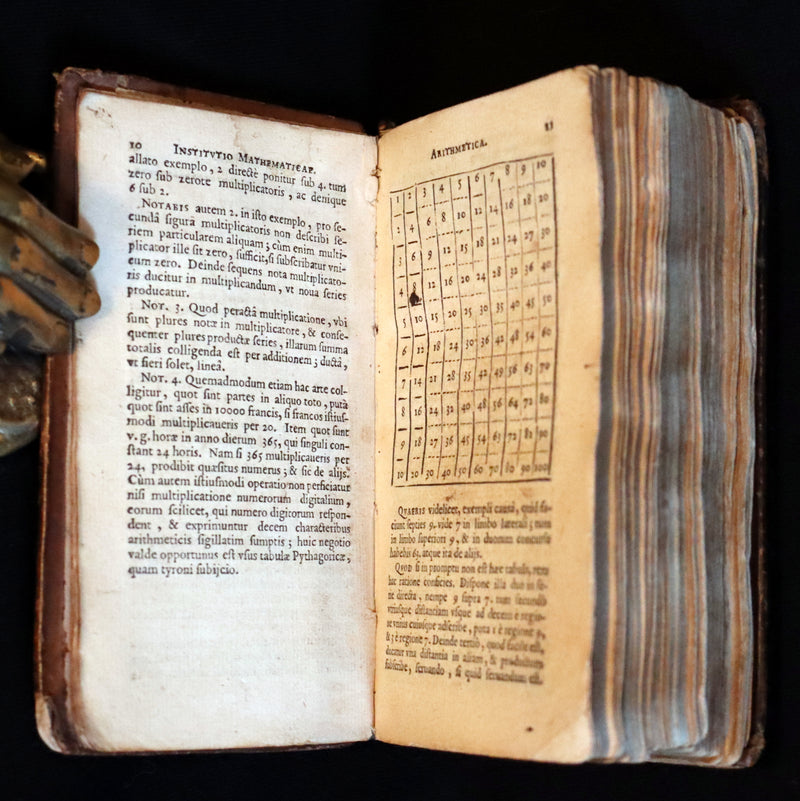 10 INSTITVTIO MATHEMATICAE.
allato exemplo, 2 directè ponitur sub 4. tum
zero sub zerote multiplicatoris, ac denique
6 sub 2.
NOTABIS autem 2. in isto exemplo, pro se-
cundâ figurâ multiplicatoris non describi se-
riem particularem aliquam; cùm enim multi-
plicator ille sit zero, sufficit, si subscribatur vni-
cum zero. Deinde sequens nota multiplicato-
ris ducitur in multiplicandum, vt noua series
producatur.
NOT. 3. Quod peractâ multiplicatione, vbi
sunt plures notæ in multiplicatore, & conse-
quenter plures productæ series, illarum summa
totalis colligenda est per additionem; ductâ,
vt fieri solet, lineâ.
NOT. 4. Quemadmodum etiam hac arte col-
ligitur, quot sint partes in aliquo toto, putà
quot sint asses in 10000 francis, si francos istius-
modi multiplicaueris per 20. Item quot sunt
v. g. horæ in anno dierum 365, qui singuli con-
stant 24 horis. Nam si 365 multiplicaueris per
24, prodibit quæsitus numerus; & sic de alijs.
Cùm autem istiusmodi operatio non perficiatur
nisi multiplicatione numerorum digitalium,
eorum scilicet, qui numero digitorum respon-
dent, & exprimuntur decem characteribus
arithmeticis sigillatim sumptis; huic negotio
valde opportunus est vsus tabulæ Pythagoricæ,
quam tyroni subijcio.
ARITHMETICA. 11
1 2 3 4 5 6 7 8 9 10
2 4 6 8 10 12 14 16 18 20
3 6 9 12 15 18 21 24 27 30
4 8 12 16 20 24 28 32 36 40
5 10 15 20 25 30 35 40 45 50
6 12 18 24 30 36 42 48 54 60
7 14 21 28 35 42 49 56 63 70
8 16 24 32 40 48 56 64 72 80
9 18 27 36 45 54 63 72 81 90
10 20 30 40 50 60 70 80 90 100
QUAERIS videlicet, exempli causâ, quid fa-
ciunt septies 9. vide 7 in limbo laterali; tum
in limbo superiori 9; & in duorum concursu
habebis 63. atque ita de alijs.
QUOD si in promptu non est hæc tabula, rem
hac ratione conficies. Dispone illa duo in se-
rie directa, nempe 9 supra 7. tum secundò
vtriusque distantiam vsque ad decem è regio-
ne vnius cuiusque adscribe, puta 1 è regione 9,
& 3 è regione 7. Deinde tertiò, quod facile est,
ducatur vna distantia in aliam, & productum
subscribe, seruando, si quid seruandum est.